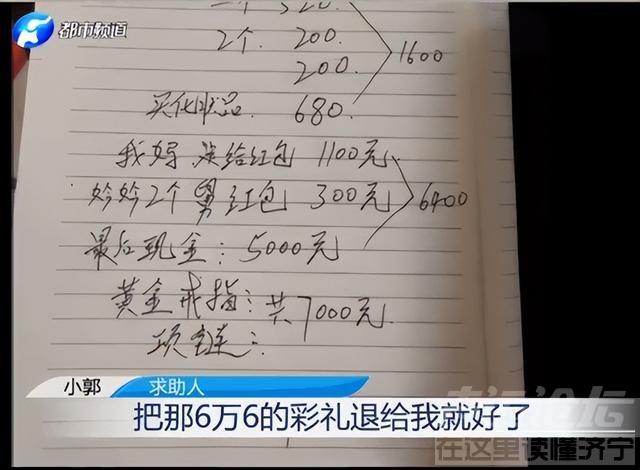 都市频道
2个. 200.
200.
1600
买化妆品. 680.
我妈 给红包 1100元
妗妗2个 舅 红包 300元
6400
最后现金:5000元
黄金戒指:共7000元
项链:
小郭 求助人
把那6万6的彩礼退给我就好了
在这里读懂济宁